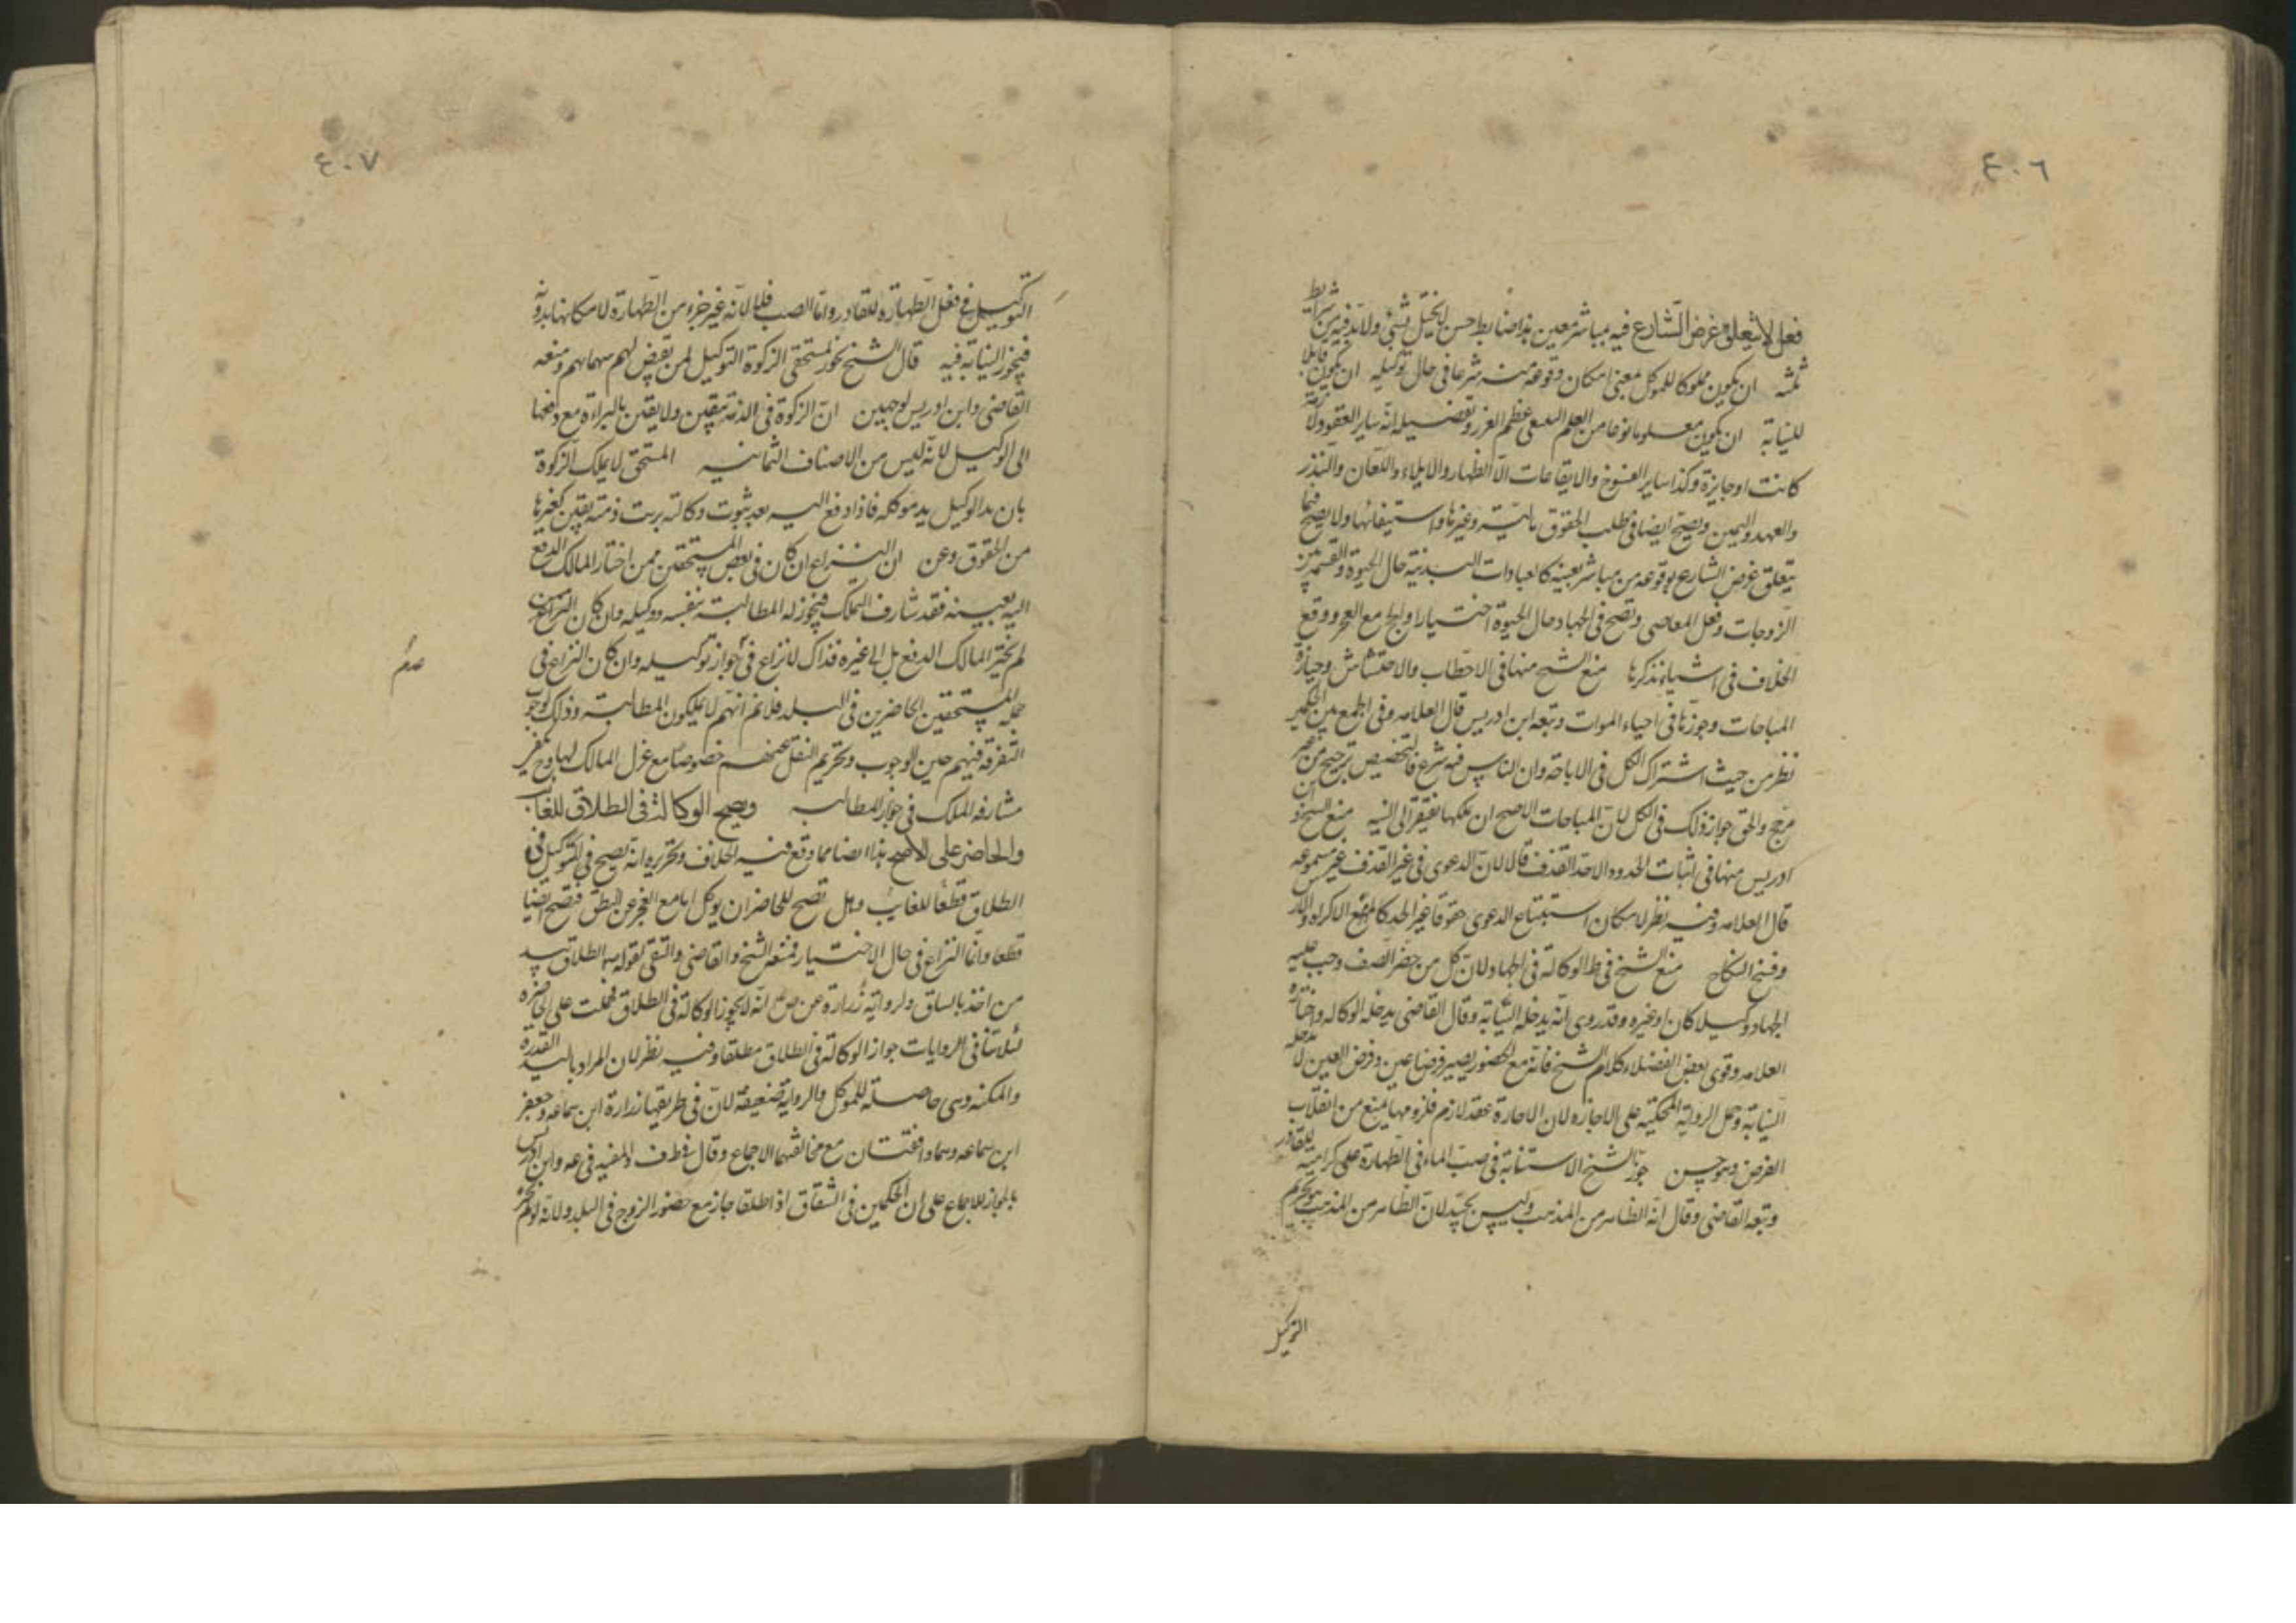 ٤٠٦
فعل لا يتعلق غرض الشارع فيه بمباشر معين هذا ضابط حسن لا يختل بشئ ولابد فيه من شرايط
ثلثه ان يكون مملوكا للموكل بمعنى امكان وقوعه منه شرعا في حال توكيله ان يكون قابلا
للنيابة ان يكون معلوما نوعا من العلم لينتفى عظم الغرر وتفصيله انه ساير العقود ولازمة
كانت او جايزة وكذا ساير الفسوخ والايقاعات الا الظهار والايلاء واللعان والنذر
والعهد واليمين ويصح ايضا في طلب الحقوق باليته وغيرها واستيفائها ولا يصح فيما
يتعلق غرض الشارع بوقوعه من مباشر بعينه كالعبادات البدنية حال الحيوة والقسم بين
الزوجات وفعل المعاصى وتصح في الجهاد حال الحيوة اختيارا والحج مع العجز ووقع
الخلاف في اشياء نذكرها منع الشيخ منها في الاحتطاب والاحتشاش وحيازة
المباحات وجوزها في احياء الموات وتبعه ابن ادريس قال العلامه وفي الجمع بين الحكمين
نظر من حيث اشتراك الكل في الاباحة وان الناس فيه شرع فالتخصيص ترجيح من غير
مرجح والحق جواز ذلك في الكل لان المباحات الاصح ان تملكها يفتقر الى النيه منع الشيخ وابن
ادريس منها في اثبات الحدود الا حد القذف قالا لان الدعوى في غير القذف غير مسموعه
قال العلامه وفيه نظر لامكان استتباع الدعوى حقوقا غير الحد كالمهر مع الاكراه
وفسخ النكاح منع الشيخ في ط الوكالة في الجهاد لان كل من حضر الصف وجب عليه
الجهاد وكيلا كان او غيره وقد روى انه يدخله النيابة وقال القاضى يدخله الوكاله واختاره
العلامه وقوى بعض الفضلاء كلام الشيخ فانه مع الحضور يصير فرضا عين وفرض العين لا يدخله
النيابة وحمل الرواية المحكية على الاجازه لان الاجارة عقد لازم فلزومها يمنع من انقلاب
الفرض وهو حسن جوز الشيخ الاستنابة في صب الماء في الطهارة على كراهيه للقادر
وتبعه القاضى وقال انه الظاهر من المذهب وليس بجيد لان الظاهر من المذهب هو تحريم
التوكيل
٤٠٧
التوكيل في فعل الطهارة للقادر واما الصب فلا لانه غير جزء من الطهارة لامكانها بدونه
فيجوز النيابة فيه قال الشيخ يجوز لمستحقى الزكوة التوكيل لمن يقبض لهم سهمانهم ومنعه
القاضى وابن ادريس لوجهين ان الزكوة في الذمة بيقين ولا يقين بالبراءة مع دفعها
الى الوكيل لانه ليس من الاصناف الثمانيه المستحق لا يملك الزكوة
بان يد الوكيل يد موكله فاذا دفع اليه بعد ثبوت وكالته بريت ذمته بيقين كغيرها
من الحقوق وعن ان النزاع ان كان في بعض المستحقين ممن اختار المالك الدفع
اليه بعينه فقد شارف التملك فيجوز له المطالبة بنفسه ووكيله وان كان النزاع فيمن
لم يختر المالك الدفع بل الى غيره فذاك لا نزاع في جواز توكيله وان كان النزاع في
عدم
جملة المستحقين الحاضرين في البلد فلانم انهم لا يملكون المطالبة وذلك لوجوب
التفرقة فيهم حين الوجوب وتحريم النقل عنهم خصوصا مع عزل المالك لها وح
مشارفه الملك في جواز المطالبه ويصح الوكالة في الطلاق للغايب
والحاضر على الاصح هذا ايضا مما وقع فيه الخلاف وتحريره انه يصح في التوكيل في
الطلاق قطعا للغايب وهل تصح للحاضر ان يوكل اما مع العجز عن النطق فتصح ايضا
قطعا وانما النزاع في حال الاختيار فمنعه الشيخ والقاضى والتقى لقوله الطلاق بيد
من اخذ بالساق ولرواية زرارة عن ص انه لا يجوز الوكالة في الطلاق فحملت على الحاضره
لئلا تنافى الروايات جواز الوكالة في الطلاق مطلقا وفيه نظر لان المراد باليد القدرة
والمكنه وهى حاصلة للموكل والرواية ضعيفة لان في طريقها زرارة ابن سماعه وجعفر
ابن سماعه وهما واقفتان مع مخالفتهما الاجماع وقال ف والمفيد في عه وابن ادريس
بالجواز للاجماع على ان الحكمين في الشقاق اذا طلقا جاز مع حضور الزوج في البلد ولانه لو لم يجز